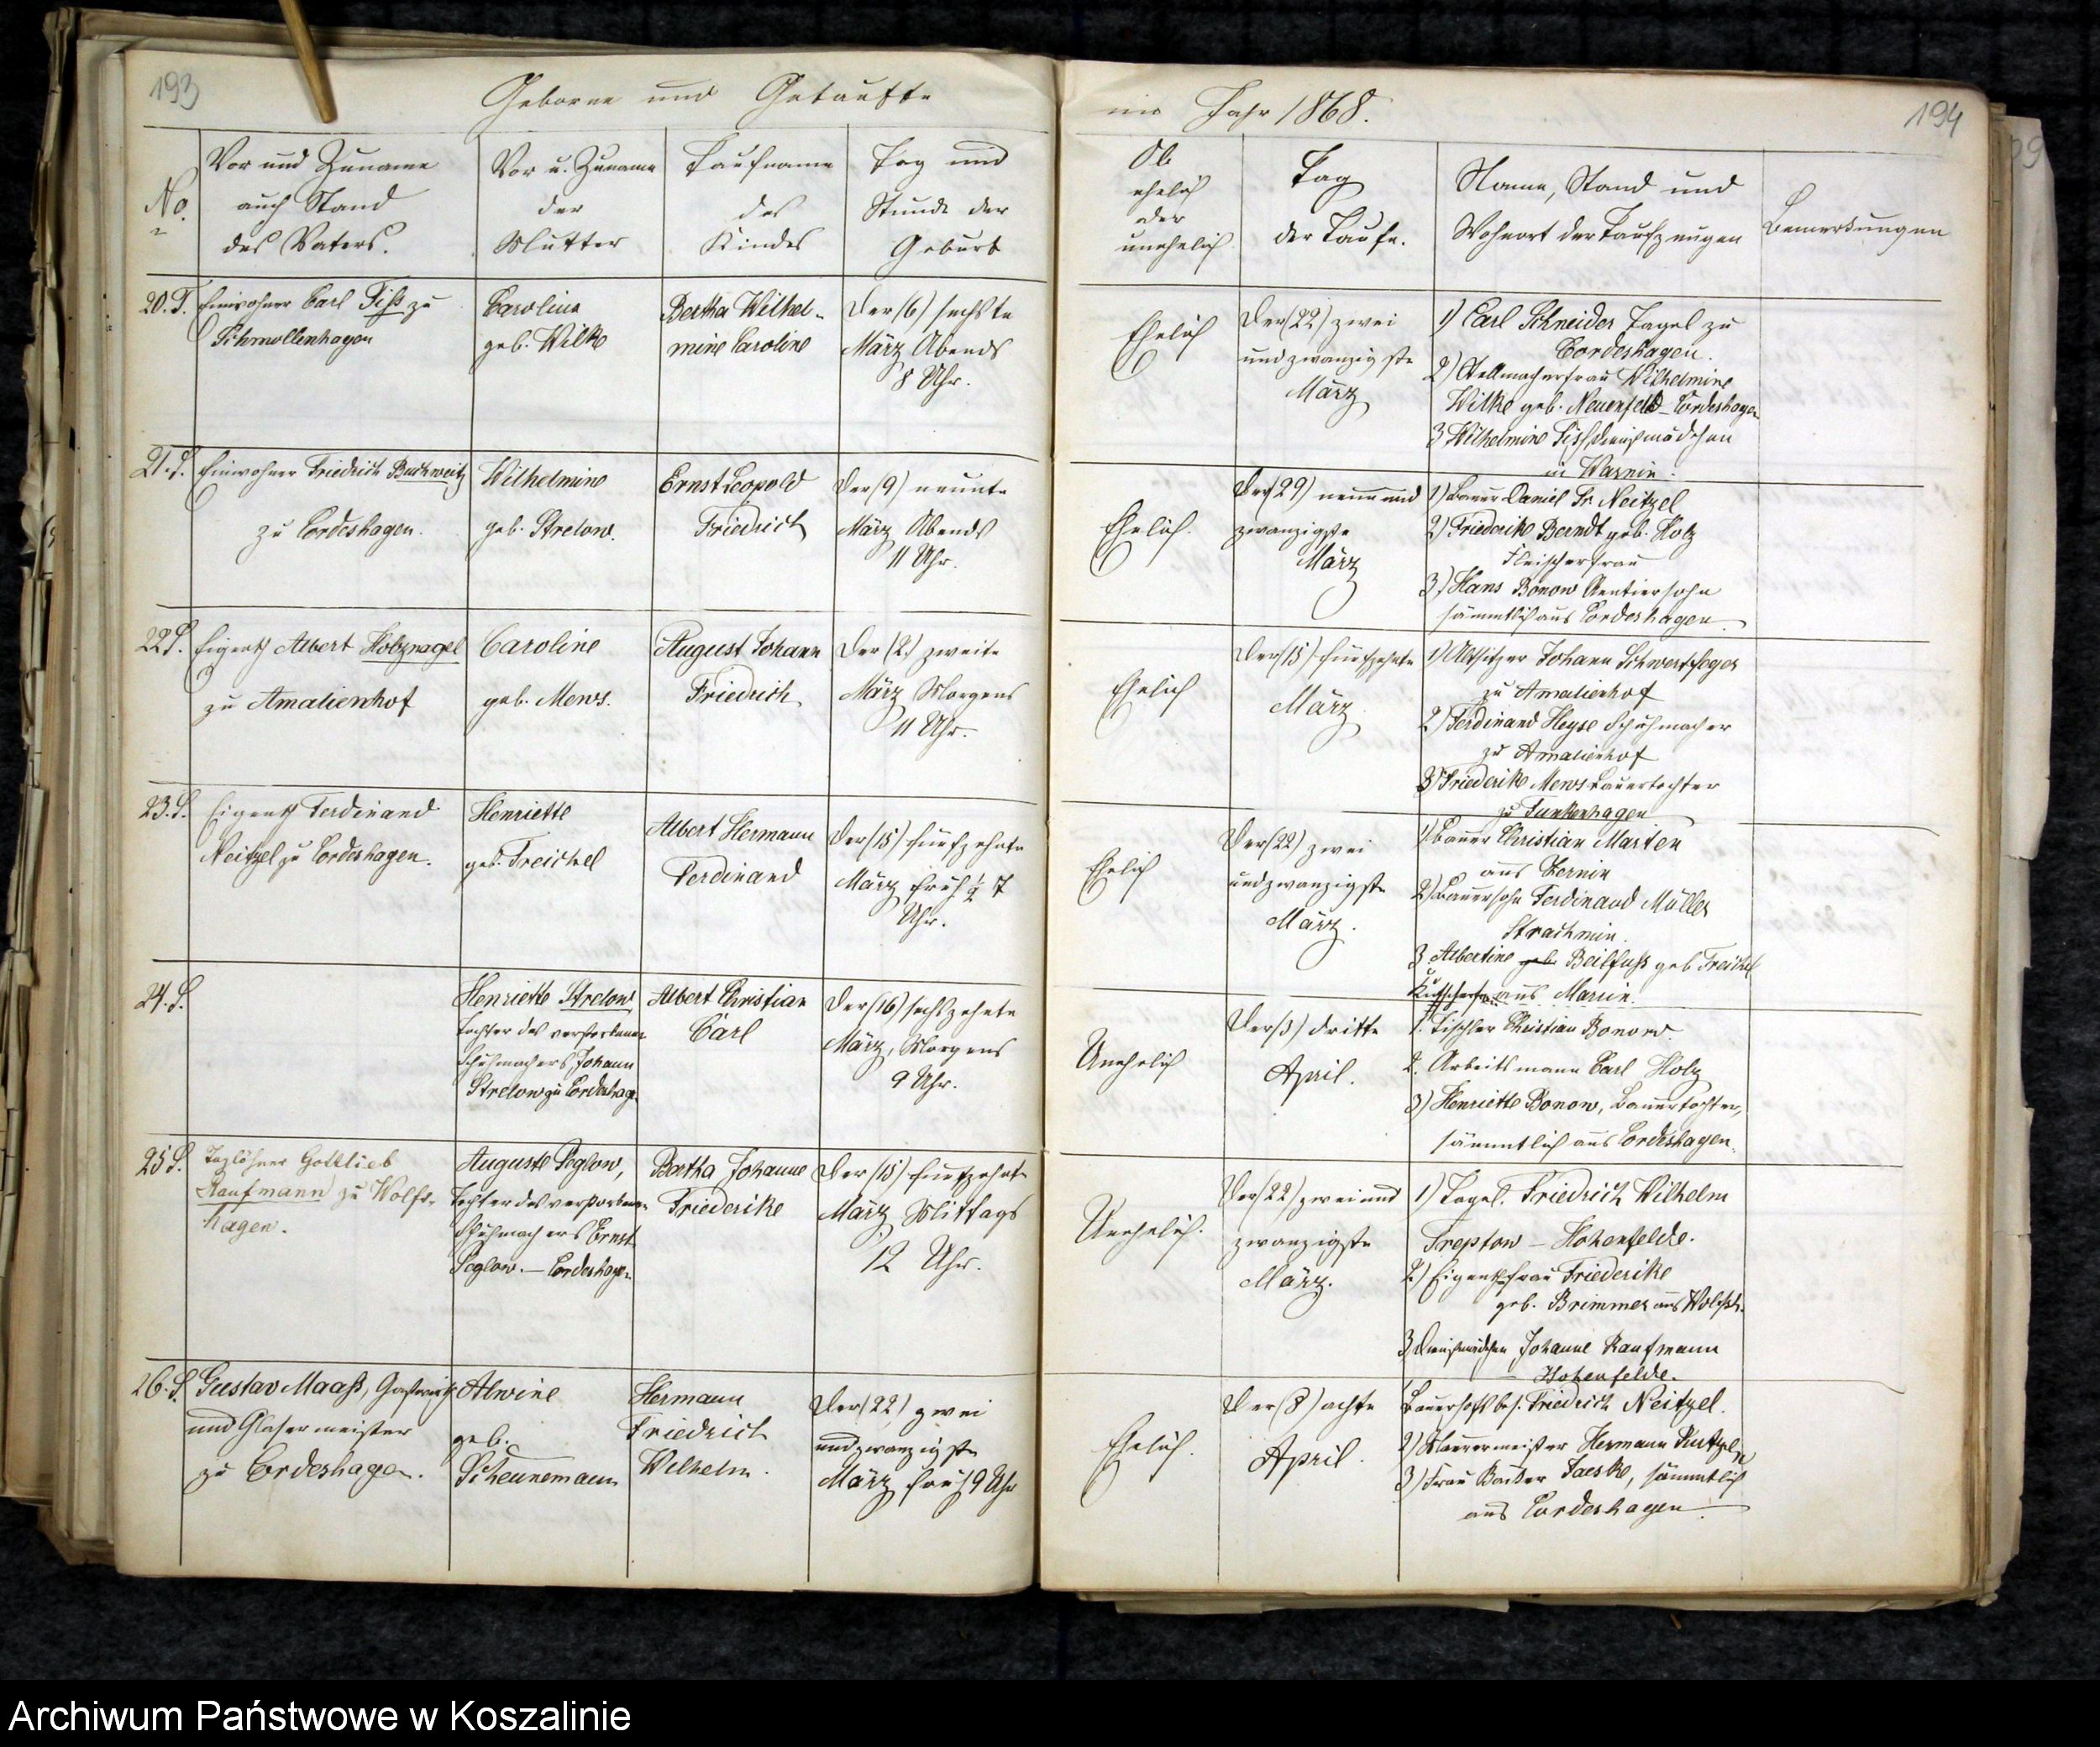 193
Geborne und Getaufte
No.
Vor und Zuname
auch Stand
des Vaters.
Vor u. Zuname
der
Mutter
Taufname
des
Kindes
Tag und
Stunde der
Geburt
20. T.
Einwohner Carl Fiß zu
Schmollenhagen
Caroline
geb. Wilke
Bertha Wilhel-
mine Caroline
Der (6) sechste
März Abends
8 Uhr.
21. S.
Einwohner Friedrich Buchweitz
zu Cordeshagen.
Wilhelmine
geb. Strelow.
Ernst Leopold
Friedrich
Der (9) neunte
März Abends
11 Uhr.
22 S.
Eigenth Albert Holznagel
zu Amalienhof
Caroline
geb. Mews.
August Johann
Friedrich
Der (2) zweite
März Morgens
11 Uhr.
23. S.
Eigenth Ferdinand
Neitzel zu Cordeshagen.
Henriette
geb. Treichel
Albert Hermann
Ferdinand
Der (15) fünfzehnte
März früh ½ 7
Uhr.
24. S.
Henriette Strelow
Tochter des verstorbenen
Schuhmachers Johann
Strelow zu Cordeshage.
Albert Christian
Carl
Der (16) sechszehnte
März, Morgens
9 Uhr.
25 S.
Taglöhner Gottlieb
Kaufmann zu Wolfs-
hagen.
Auguste Peglow,
Tochter des verstorbenen
Schuhmachers Ernst
Peglow. — Cordeshagen
Bertha Johanne
Friederike
Der (15) fünfzehnte
März Mittags
12 Uhr.
26. S.
Gustav Maaß, Gastwirth
und Glasermeister
zu Cordeshagen.
Alwine
geb.
Scheunemann
Hermann
Friedrich
Wilhelm.
Der (22) zwei
undzwanzigste
März früh 9 Uhr
im Jahr 1868.
194
Ob
ehelich
oder
unehelich
Tag
der Taufe.
Name, Stand und
Wohnort der Taufzeugen
Bemerkungen
Ehelich
Der (22) zwei
undzwanzigste
März
1) Carl Schneider Tagel zu
Cordeshagen.
2) Stellmacherfrau Wilhelmine
Wilke geb. Neuenfeld - Cordeshagen
3 Wilhelmine Fiß Dienstmädchen
in Warnin.
Ehelich.
Der (29) neunund
zwanzigste
März
1) Bauer Daniel Fr. Neitzel
2) Friederike Berndt geb. Holz
Fleischerfrau
3) Hans Bonow Rentiersohn
sämmtlich aus Cordeshagen
Ehelich
Der (15) fünfzehnte
März
1) Altsitzer Johann Schwertfeger
zu Amalienhof
2) Ferdinand Heyse Schuhmacher
zu Amalienhof
3) Friederike Mews Bauertochter
zu Funkenhagen
Ehelich
Der (22) zwei
undzwanzigste
März.
1) Bauer Christian Marten
aus Zernin
2) Bauersohn Ferdinand Müller
Strachmin.
3 Albertine geb. Beilfuß geb Treichel
aus Marrin.
Unehelich
Der (3) dritte
April.
1. Tischler Christian Bonow.
2. Arbeitsmann Carl Holz
3) Henriette Bonow, Bauertochter,
sämmtlich aus Cordeshagen.
Unehelich.
Der (22) zweiund
zwanzigste
März.
1) Tagel. Friedrich Wilhelm
Treptow — Hohenfelde.
2.) Eigenthfrau Friederike
geb. Brimmer aus Wolfsh.
3 Dienstmädchen Johanne Kaufmann
Hohenfelde.
Ehelich.
Der (8) achte
April.
Bauerhofsbes. Friedrich Neitzel.
2) Maurermeister Hermann
3) Frau Bäcker Jaeske, sämmtlich
aus Cordeshagen.
Archiwum Państwowe w Koszalinie